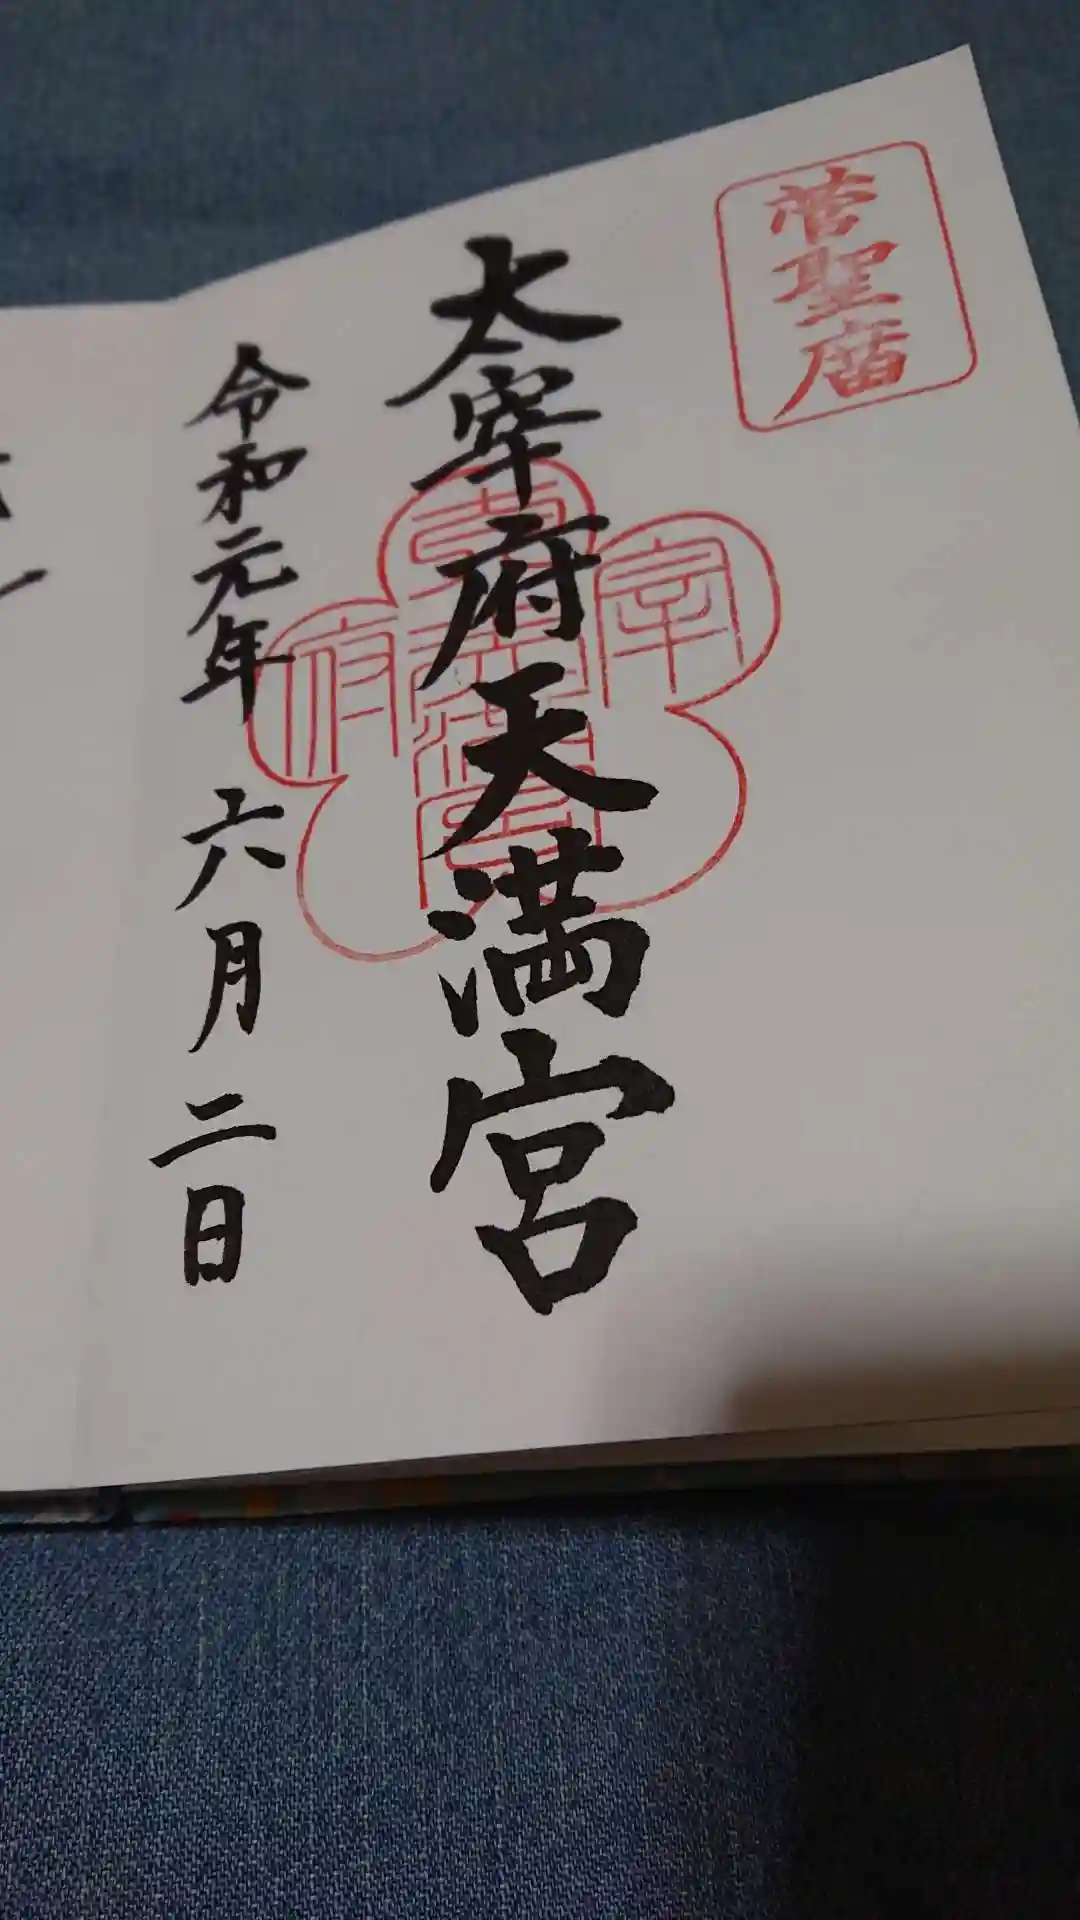 菅聖庿
太宰府天満宮
令和元年六月二日